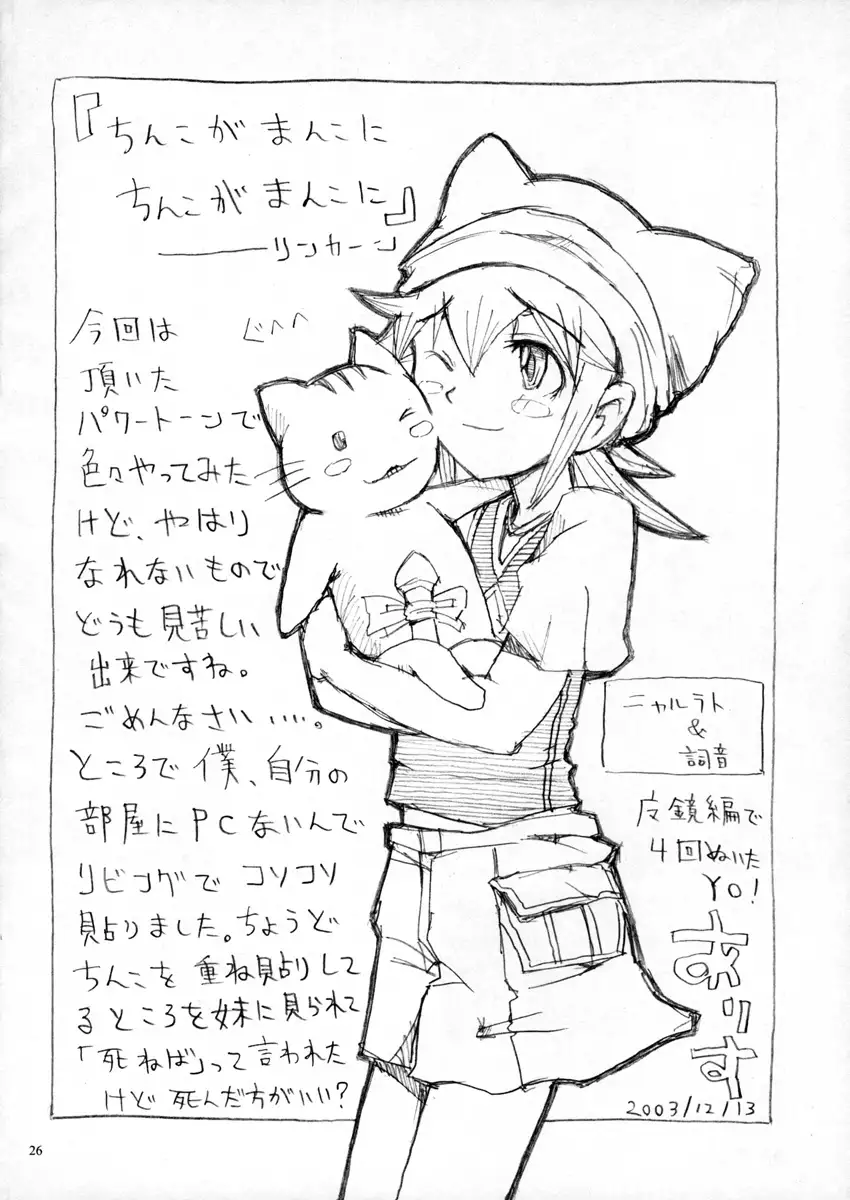 『ちんこがまんこに
ちんこがまんこに』
――リンカーン
今回は ぐへへ
頂いた
パワートーンで
色々やってみた
けど、やはり
なれないもので
どうも見苦しい
出来ですね。
ごめんなさい……。
ところで僕、自分の
部屋にPCないんで
リビングでコソコソ
貼りました。ちょうど
ちんこを重ね貼りして
るところを妹に見られて
「死ねば」って言われた
けど死んだ方がいい?
ニャルラト
&
詞音
皮鏡編で
4回ぬいた
YO!
ありす
2003/12/13
26